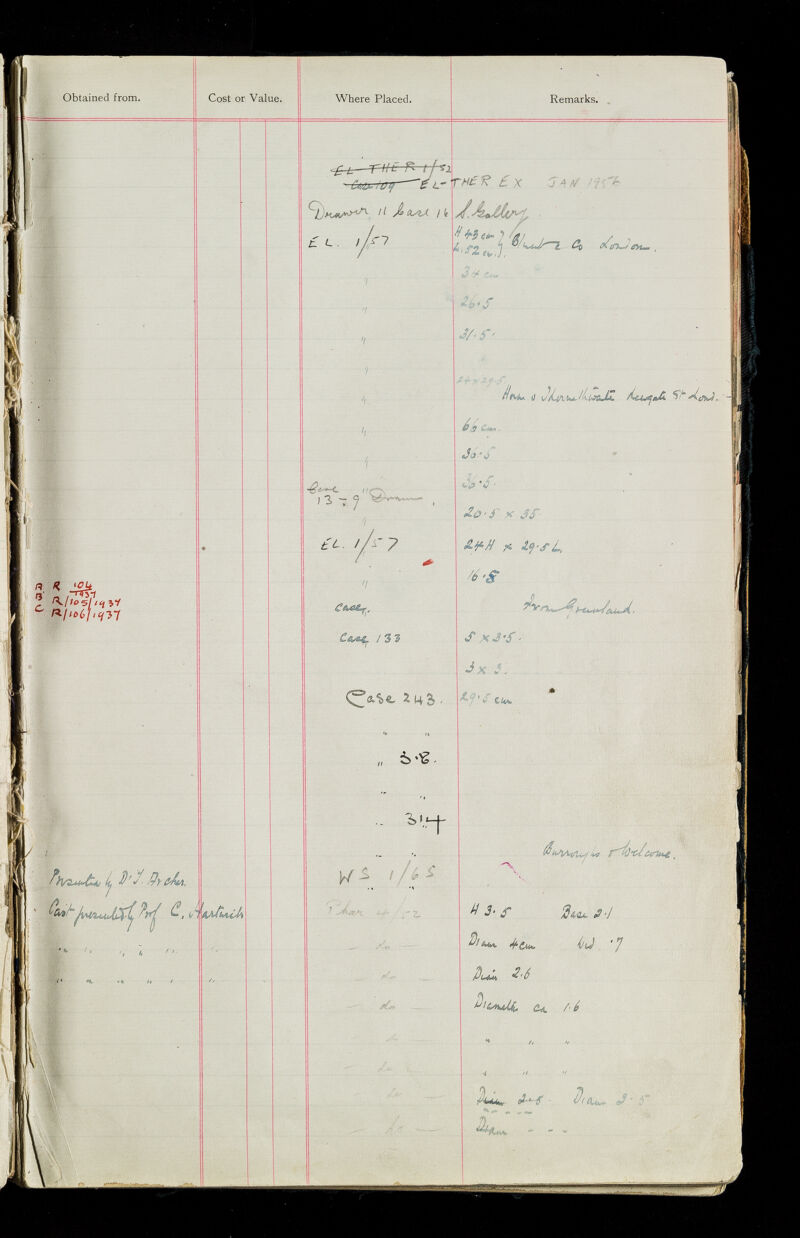 Obtained from. Cost or Value. Where Placed. Remarks.
EL-THER 1/52
Case 109 EL-THER EX JAN 1956
Drawer 11 Case 16 S. Gallery.
EL. 1/57 H 43 cm
L. 52 cm. Co London.
" 34 cm
" 26.5
" 31.5
"
24 x 29.5
" Horne & Thornethwaite Newgate St Lond.
" 66 cm.
" 30.5
Case 36.5.
13 - 9" Drawer.
" 20.5 x 35
EL. 1/57 24 H x 29.5 L
" 16.5
A. R 104/1937
B R/105/1937
C R/106/1937
Case. From Greenland.
Case 133 5 x 3.5.
3 x 3.
Case 243. 29.5 cm
" "
" 38.
" "
" 314
" " Burroughs & Welcome.
Presented by Dr J. Archer. WS 1/65
" "
Cast presented by Prof C. Phar 4/52 H 3.5 Base 2.1
" " " " " " — do — Diam 4 cm Wd .7
" " " " " " — do — Diam 2.6
— do — Diameter ca 1.6
— do — " " "
— do — " " "
— do — Diam 2.8 Diam 2.5
— do — Diam - - -